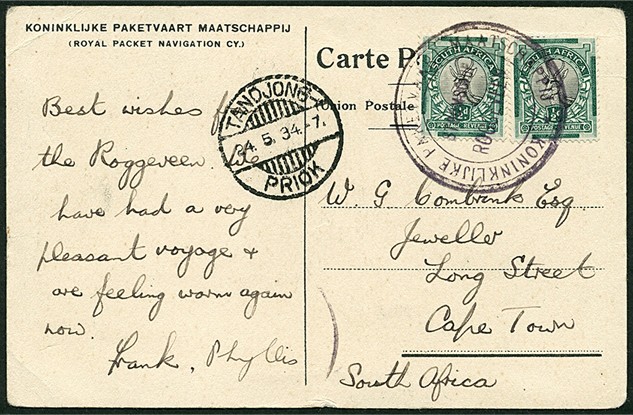 KONINKLIJKE PAKETVAART MAATSCHAPPIJ
(ROYAL PACKET NAVIGATION CY.)
Carte P
Union Postale
TANDJONG
24.5.34.-7.
PRIOK
SOUTH AFRICA
POSTAGE REVENUE
SOUTH AFRICA
POSTAGE REVENUE
KONINKLIJKE PAKE
Best wishes
the Roggeveen. We
have had a very
pleasant voyage &
are feeling warm again
now.
Frank, Phyllis
W. G Combrink Esq
Jeweller
Long Street
Cape Town
South Africa